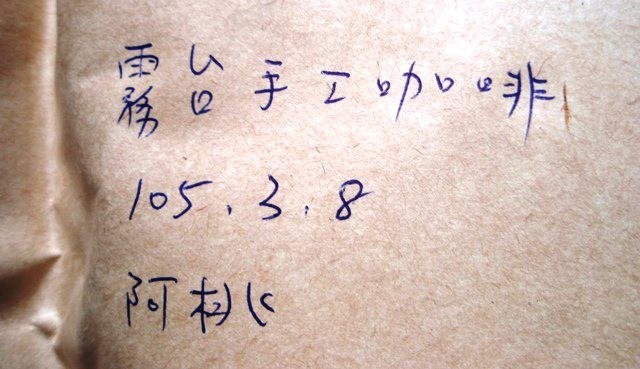 霧台手工咖啡
105.3.8
阿